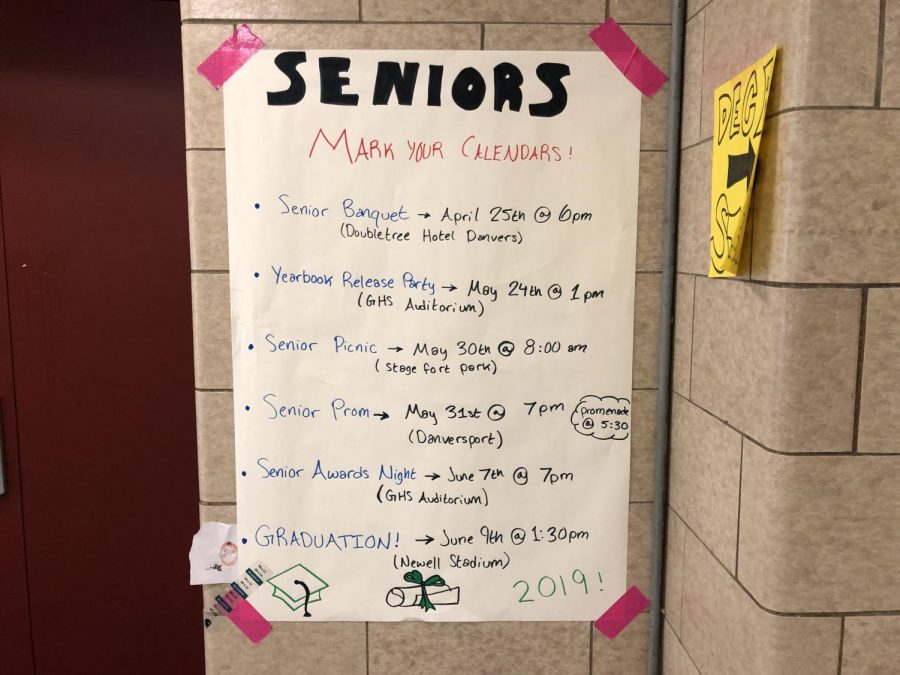 SENIORS
MARK YOUR CALENDARS!
• Senior Banquet → April 25th @ 6pm
(Doubletree Hotel Danvers)
• Yearbook Release Party → May 24th @ 1pm
(GHS Auditorium)
• Senior Picnic → May 30th @ 8:00 am
(Stage fort park)
• Senior Prom → May 31st @ 7pm
(Danversport)
promenade
@ 5:30
• Senior Awards Night → June 7th @ 7pm
(GHS Auditorium)
• GRADUATION! → June 9th @ 1:30pm
(Newell Stadium)
2019!